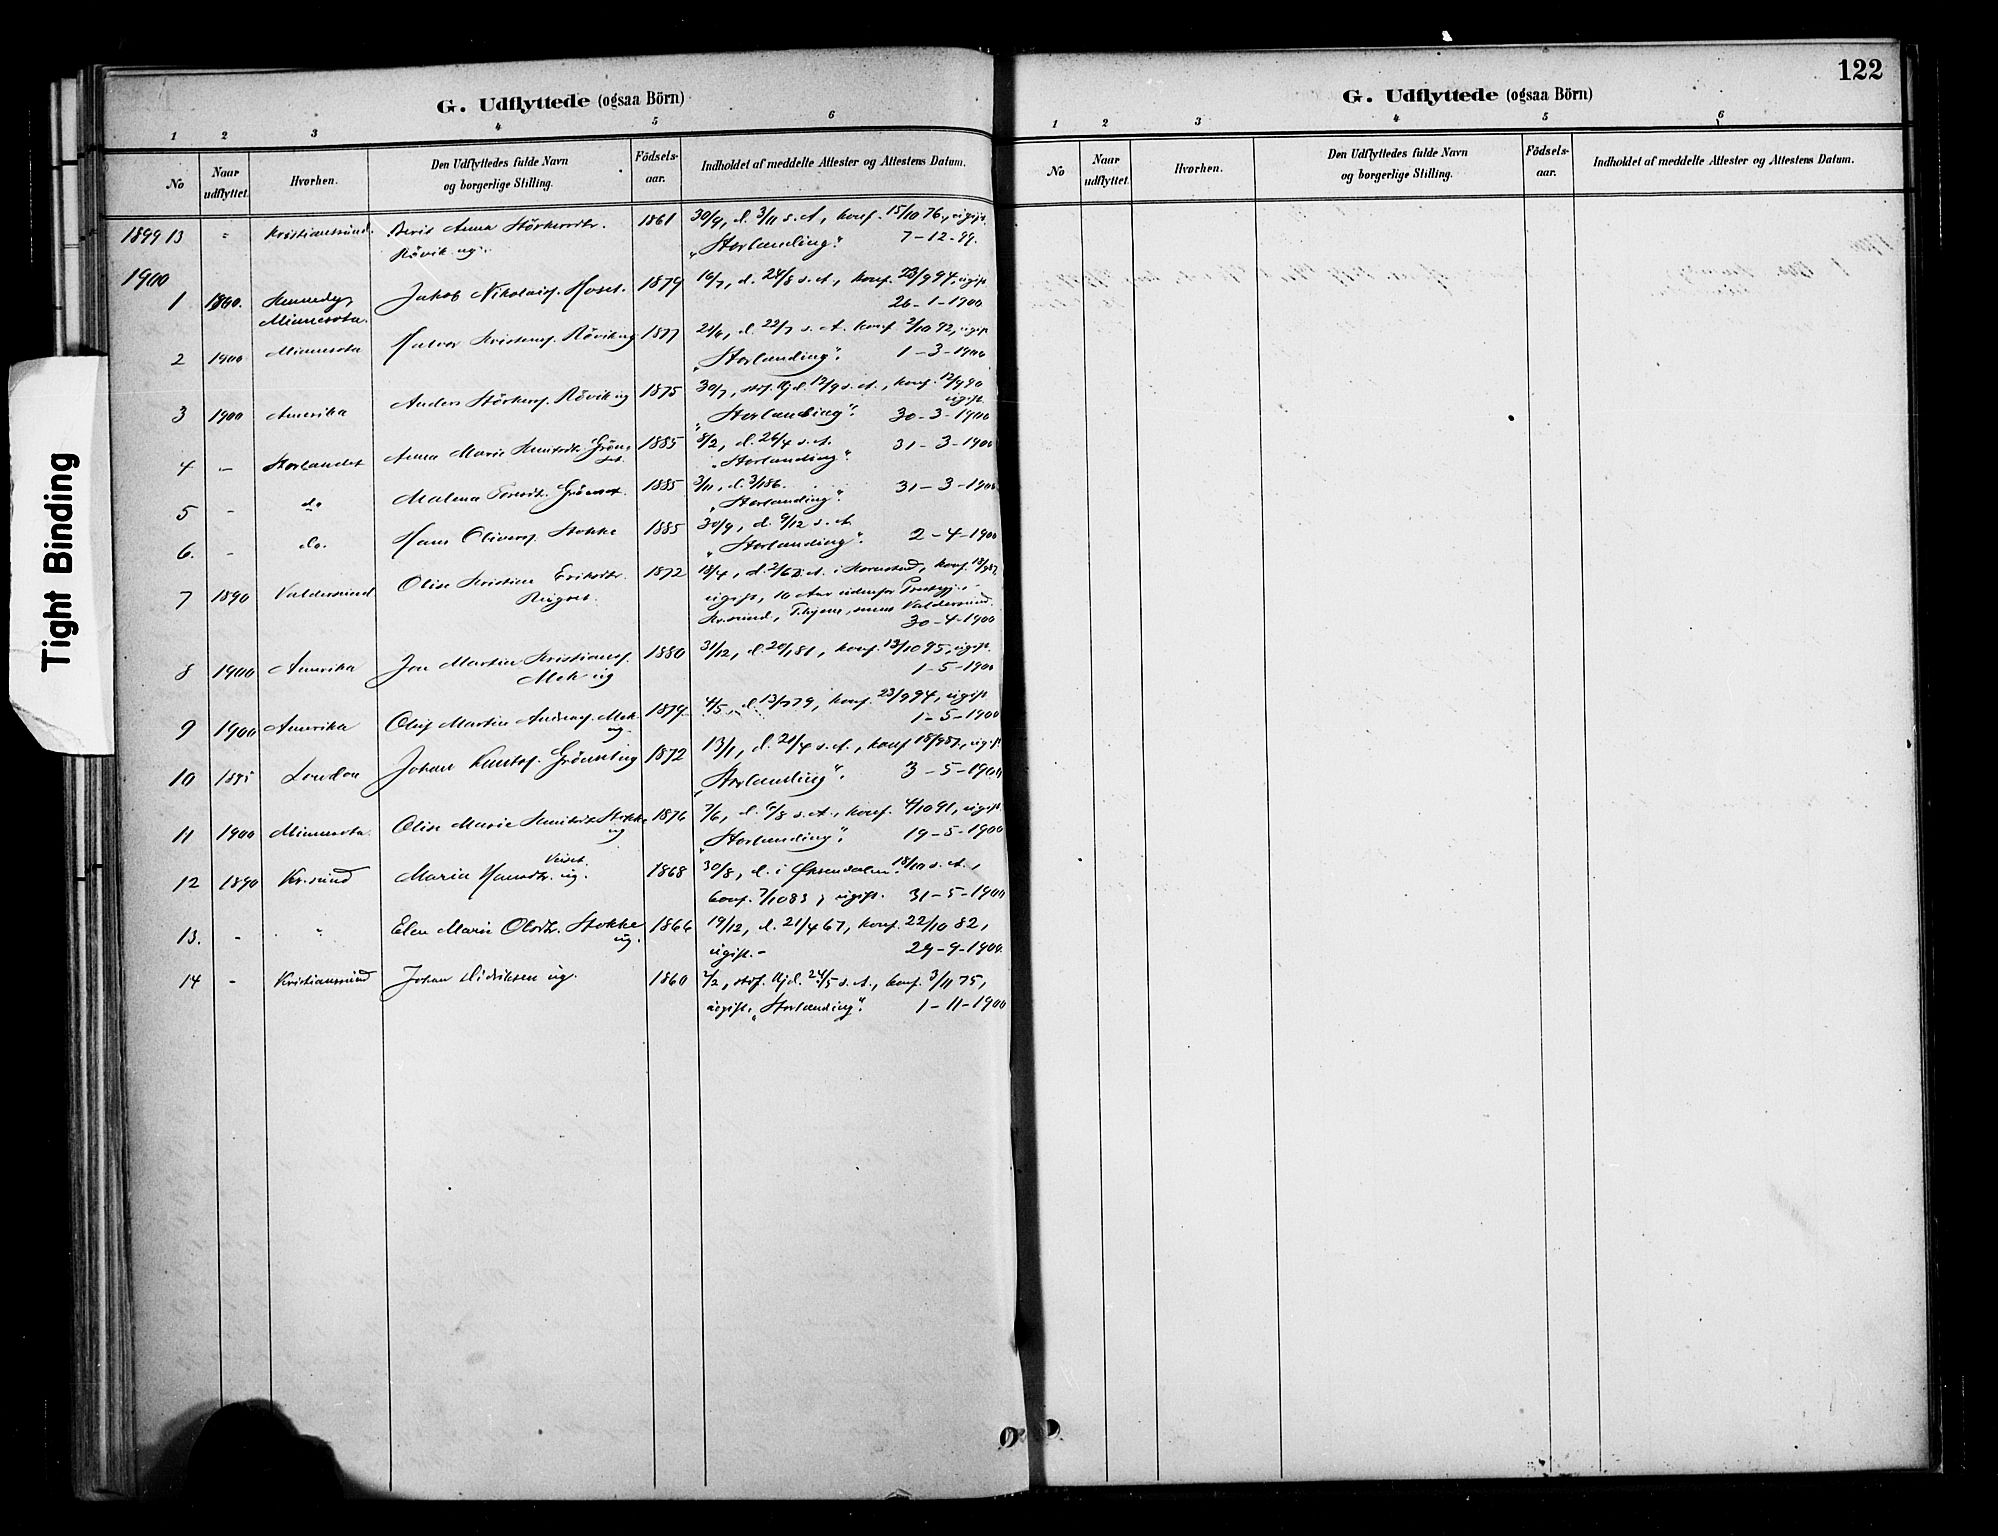 122
G. Udflyttede (ogsaa Börn)
1 2 3 4 5 6
No
Naar udflyttet.
Hvorhen.
Den Udflyttedes fulde Navn og borgerlige Stilling.
Födsels-aar.
Indholdet af meddelte Attester og Attestens Datum.
1899 13 " Kristiansund. Berit Anna Störkersdtr. 1861 30/9, d. 3/11 s. A., konf. 15/10 76, ugift.
Rövik ug. "Storlanding". 7-12-99.
1900
1 1900. Kennedy, Jakob Nikolaisf. Hoset. 1879 16/7, d. 24/8 s. A., konf. 23/9 94, ugift
Minnesota. 26-1-1900
2 1900 Minnesota Halvor Kristensf. Rövik ug 1877 24/6, d. 22/7 s. A. konf. 2/10 92, ugift
"Storlanding". 1-3-1900
3 1900 Amerika Anders Störkersf. Rövik ug 1875 30/7, stdf. Kjd. 12/9 s. A., konf. 12/9 90
ugift.
"Storlanding". 30-3-1900
4 - Storlandet Anna Marie Knutsdtr. Grönset. 1885 8/2, d. 26/4 s. A. 31-3-1900
"Storlanding".
5 - do Malena Toresdt. Grönset. 1885 3/11, d. 3/1 86. 31-3-1900
"Storlanding".
6. - do. Hans Oliversf. Stokke 1885 30/9, d. 9/12 s. A.
"Storlanding". 2-4-1900
7 1890 Valdersund Oline Kristine Eriksdtr. 1872 18/4, d. 2/6 s. A. i Kornstad, konf. 18/9 87
Ringset. ugift, 10 Aar udenfor Prestegj. i
Kr.sund, T.hjem, mens Valdersund.
30-4-1900
8 1900 Amerika Jon Martin Kristiansf. 1880 31/12, d. 20/1 81, konf. 13/10 95, ugift.
Mek ug 1-5-1900
9 1900 Amerika Oluf Martin Andreasf. Mek 1879 4/5, d. 13/7 79, konf. 23/9 94, ugift
ug. 1-5-1900
10 1895 London Johan Knutsf. Grönset ug 1872 13/1, d. 21/4 s. A., konf 18/9 87, ugift
"Storlanding". 3-5-1900
11 1900 Minnesota. Oline Marie Knutsdtr. Stokke 1876 7/6, d. 6/8 s. A., konf. 4/10 91, ugift.
ug "Storlanding". 19-5-1900
12 1890 Kr.sund Maria Hansdtr. ug. 1868 30/8, d. i Øksendalen 18/10 s. A.,
konf. 7/10 83, ugift. 31-5-1900
13. - " Elen Marie Olsdtr. Stokke 1866 19/12, d. 21/4 67, konf. 22/10 82,
ug. ugift.- 29-9-1900.
14 - Kristiansund Johan Didriksen ug. 1860 2/2, stdf. Kjd. 24/5 s. A., konf. 3/11 75,
ugift. "Storlanding". 1-11-1900
G. Udflyttede (ogsaa Börn)
1 2 3 4 5 6
No
Naar udflyttet.
Hvorhen.
Den Udflyttedes fulde Navn og borgerlige Stilling.
Födsels-aar.
Indholdet af meddelte Attester og Attestens Datum.
Tight Binding